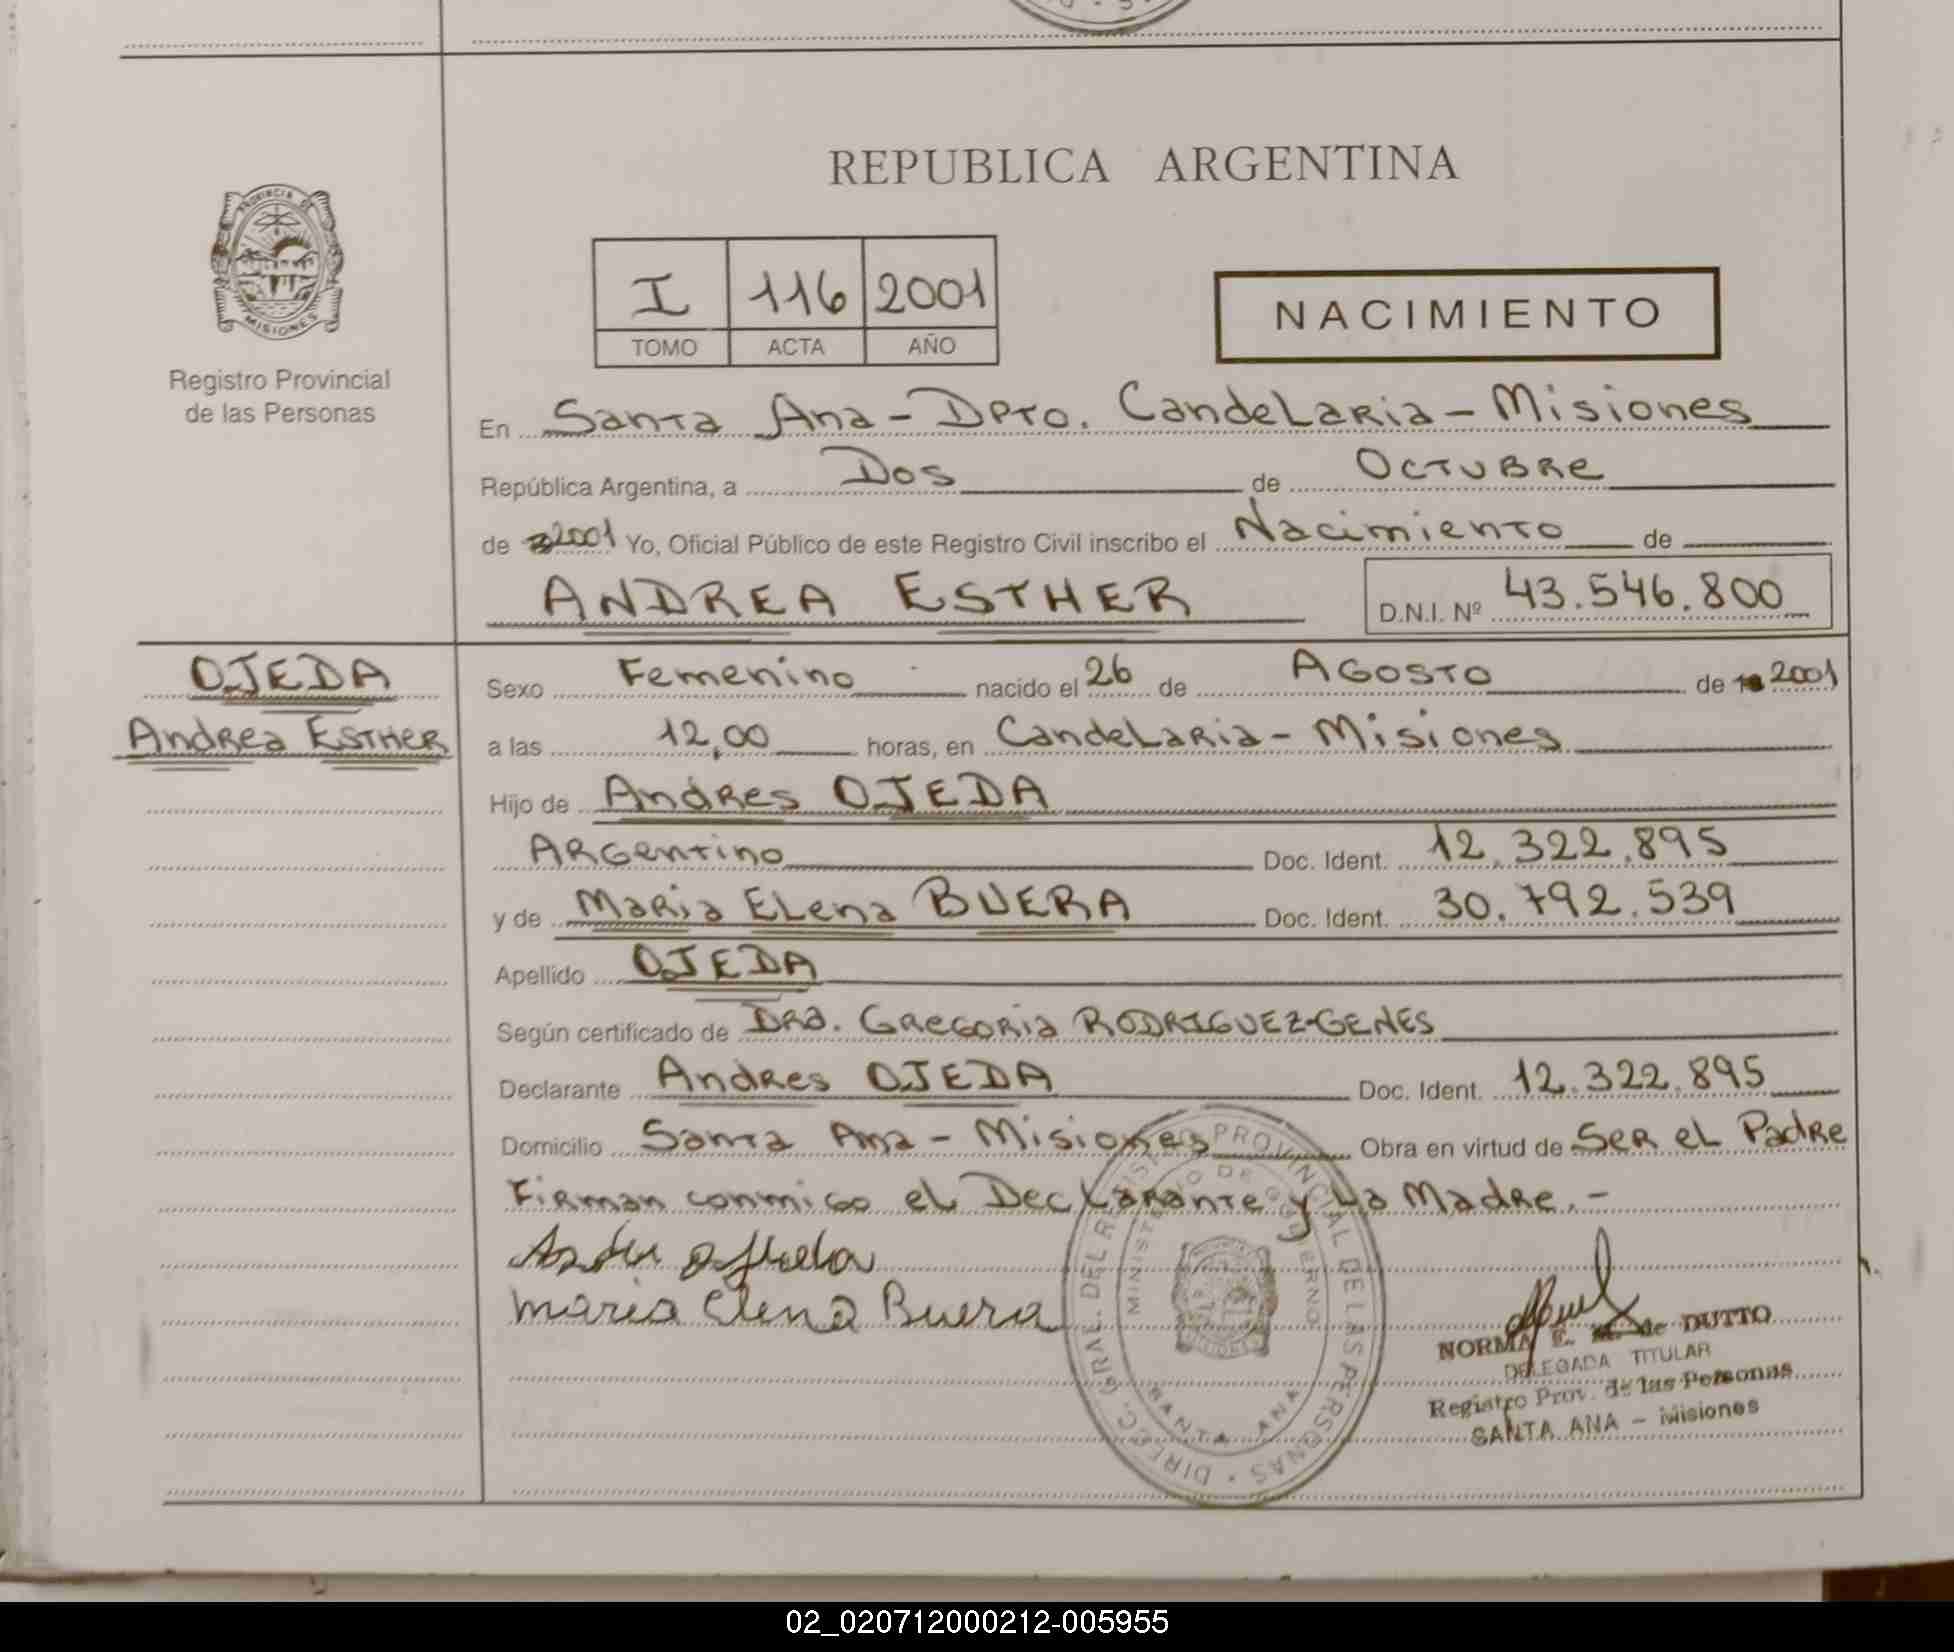 REPUBLICA ARGENTINA
PROVINCIA DE
MISIONES
Registro Provincial
de las Personas
I 116 2001
TOMO ACTA AÑO
NACIMIENTO
En Santa Ana - Dpto. Candelaria - Misiones
República Argentina, a Dos de Octubre
de 2001 Yo, Oficial Público de este Registro Civil inscribo el Nacimiento de
ANDREA ESTHER D.N.I. Nº 43.546.800
OJEDA
Andrea ESTHER
Sexo Femenino nacido el 26 de AGOSTO de 2001
a las 12,00 horas, en Candelaria - Misiones
Hijo de Andres OJEDA
Argentino Doc. Ident. 12.322.895
y de Maria Elena BUERA Doc. Ident. 30.792.539
Apellido OJEDA
Según certificado de Dra. Gregoria RODRIGUEZ-GENES
Declarante Andres OJEDA Doc. Ident. 12.322.895
Domicilio Santa Ana - Misiones Obra en virtud de Ser el Padre
Firman conmigo el Declarante y La Madre.-
Maria Elena Buera
DIREC. GRAL. DEL REGISTRO PROVINCIAL DE LAS PERSONAS
MINISTERIO DE GOBIERNO
SANTA ANA
NORMA E. de DUTTO
DELEGADA TITULAR
Registro Prov. de las Personas
SANTA ANA - Misiones
02_020712000212-005955